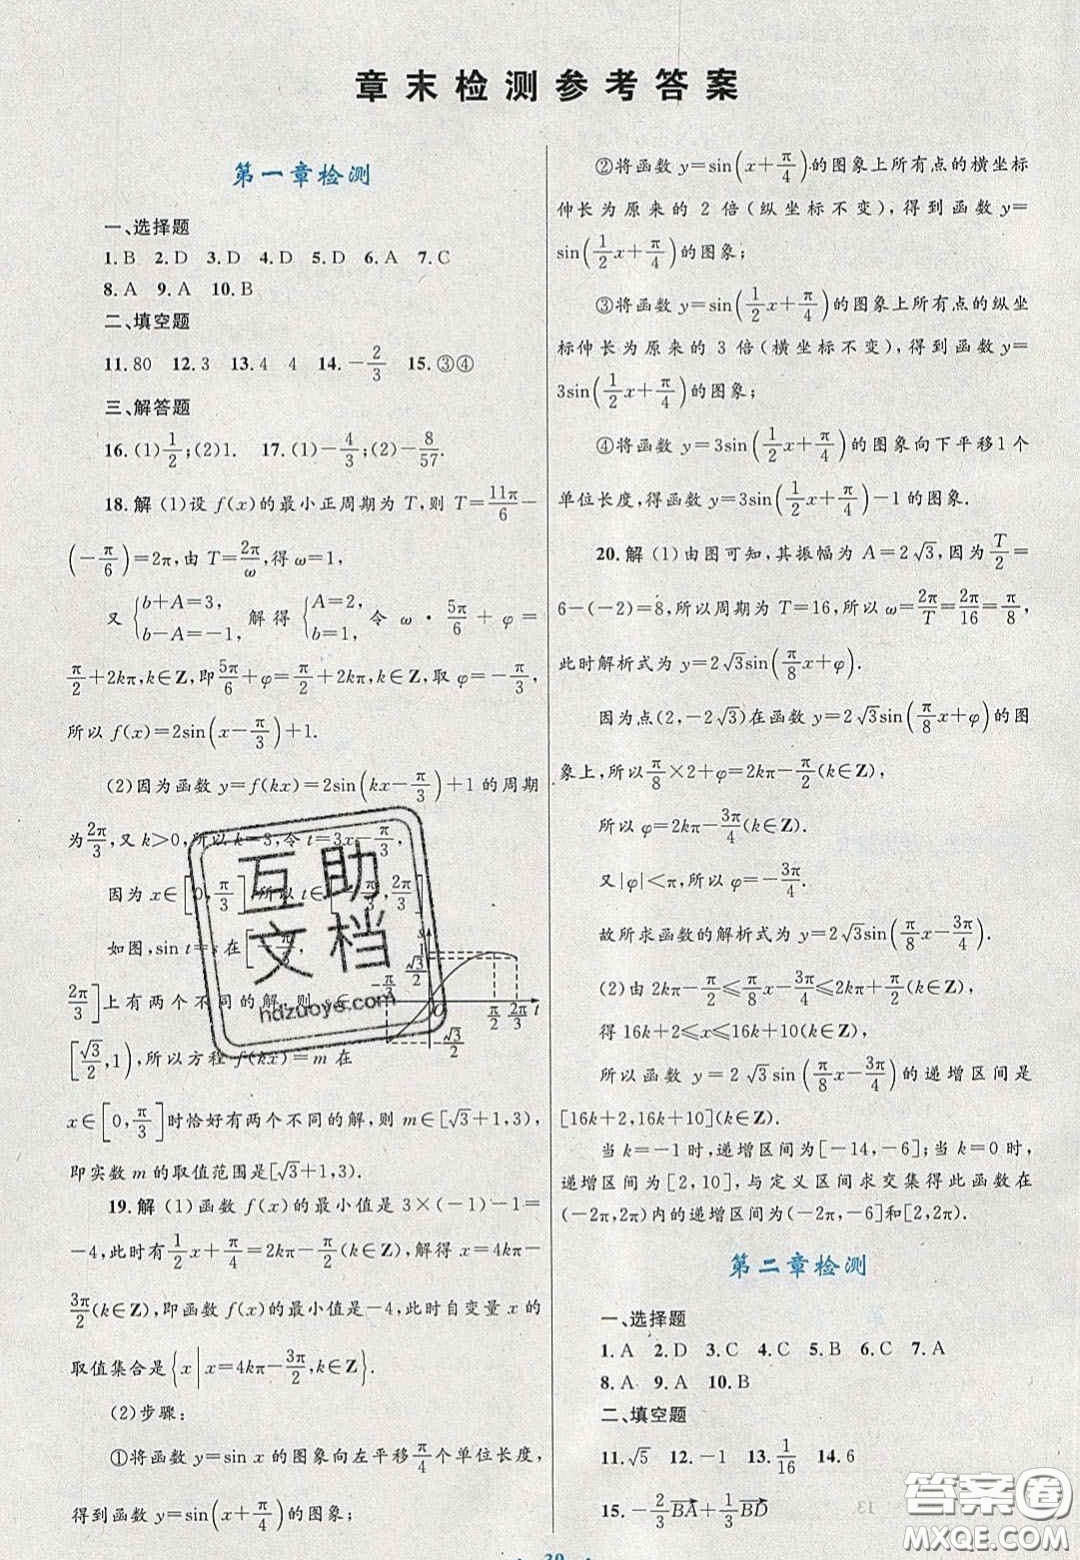 章末检测参考答案
第一章检测
一、选择题
1.B 2.D 3.D 4.D 5.D 6.A 7.C
8.A 9.A 10.B
二、填空题
11.80 12.3 13.4 4 14.-2/3 15.③④
三、解答题
16.(1)1/2;(2)1. 17.(1)-4/3;(2)-8/57.
18.解 (1)设 f(x)的最小正周期为 T,则 T=11π/6-
(-π/6)=2π,由 T=2π/ω,得 ω=1,
又 {b+A=3, b-A=-1, 解得 {A=2, b=1, 令 ω·5π/6+φ=
π/2+2kπ,k∈Z,即5π/6+φ=π/2+2kπ,k∈Z,取 φ=-π/3,
所以 f(x)=2sin(x-π/3)+1.
(2)因为函数 y=f(kx)=2sin(kx-π/3)+1 的周期
为2π/3,又 k>0,所以 k=3,令 t=3x-π/3,
因为 x∈[0,π/3],所以 t∈[-π/3,2π/3],
如图,sin t=s 在[-π/3,
2π/3]上有两个不同的解,则 s∈
[√3/2,1),所以方程 f(kx)=m 在
s
√3/2
-π/3
O
π/2 2π/3 t
-√3/2
x∈[0,π/3]时恰好有两个不同的解,则 m∈[√3+1,3),
即实数 m 的取值范围是[√3+1,3).
19.解 (1)函数 f(x)的最小值是 3×(-1)-1=
-4,此时有1/2x+π/4=2kπ-π/2(k∈Z),解得 x=4kπ-
3π/2(k∈Z),即函数 f(x)的最小值是-4,此时自变量 x 的
取值集合是{x|x=4kπ-3π/2,k∈Z}.
(2)步骤:
①将函数 y=sin x 的图象向左平移π/4个单位长度,
得到函数 y=sin(x+π/4)的图象;
②将函数 y=sin(x+π/4)的图象上所有点的横坐标
伸长为原来的 2 倍(纵坐标不变),得到函数 y=
sin(1/2x+π/4)的图象;
③将函数 y=sin(1/2x+π/4)的图象上所有点的纵坐
标伸长为原来的 3 倍(横坐标不变),得到函数 y=
3sin(1/2x+π/4)的图象;
④将函数 y=3sin(1/2x+π/4)的图象向下平移1个
单位长度,得函数 y=3sin(1/2x+π/4)-1 的图象.
20.解 (1)由图可知,其振幅为 A=2√3,因为T/2=
6-(-2)=8,所以周期为 T=16,所以 ω=2π/T=2π/16=π/8,
此时解析式为 y=2√3sin(π/8x+φ).
因为点(2,-2√3)在函数 y=2√3sin(π/8x+φ)的图
象上,所以π/8×2+φ=2kπ-π/2(k∈Z),
所以 φ=2kπ-3π/4(k∈Z).
又|φ|<π,所以 φ=-3π/4.
故所求函数的解析式为 y=2√3sin(π/8x-3π/4).
(2)由 2kπ-π/2≤π/8x-3π/4≤2kπ+π/2(k∈Z),
得 16k+2≤x≤16k+10(k∈Z),
所以函数 y=2√3sin(π/8x-3π/4)的递增区间是
[16k+2,16k+10](k∈Z).
当 k=-1 时,递增区间为[-14,-6];当 k=0 时,
递增区间为[2,10],与定义区间求交集得此函数在
(-2π,2π)内的递增区间为(-2π,-6]和[2,2π).
第二章检测
一、选择题
1.A 2.D 3.C 4.C 5.B 6.C 7.A
8.A 9.A 10.B
二、填空题
11.√5 12.-1 13.1/16 14.6
15.-2/3BA+1/3BD
互助文档
hdzuoye.com
答案圈
MXQE.COM